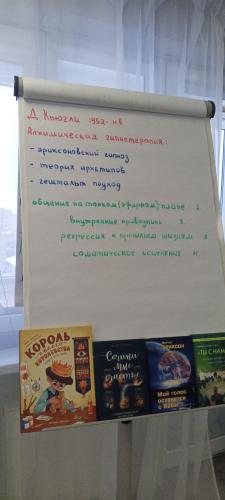 Д. Кьюгли 1952 - н.в
Алхимическая гипнотерапия:
- эриксоновский гипноз
- теория архетипов
- гештальт подход
общение на тонком (эфирном) плане 1.
внутренние проводники 2.
регрессия к прошлым жизням 3.
соматическое исцеление 4.
КОРОЛЬ
своего
КОРОЛЕВСТВА
Сотки
мне
счастье
ЭРИКСОН
Мой голос
останется
с Вами
«ТЫ СНАМ